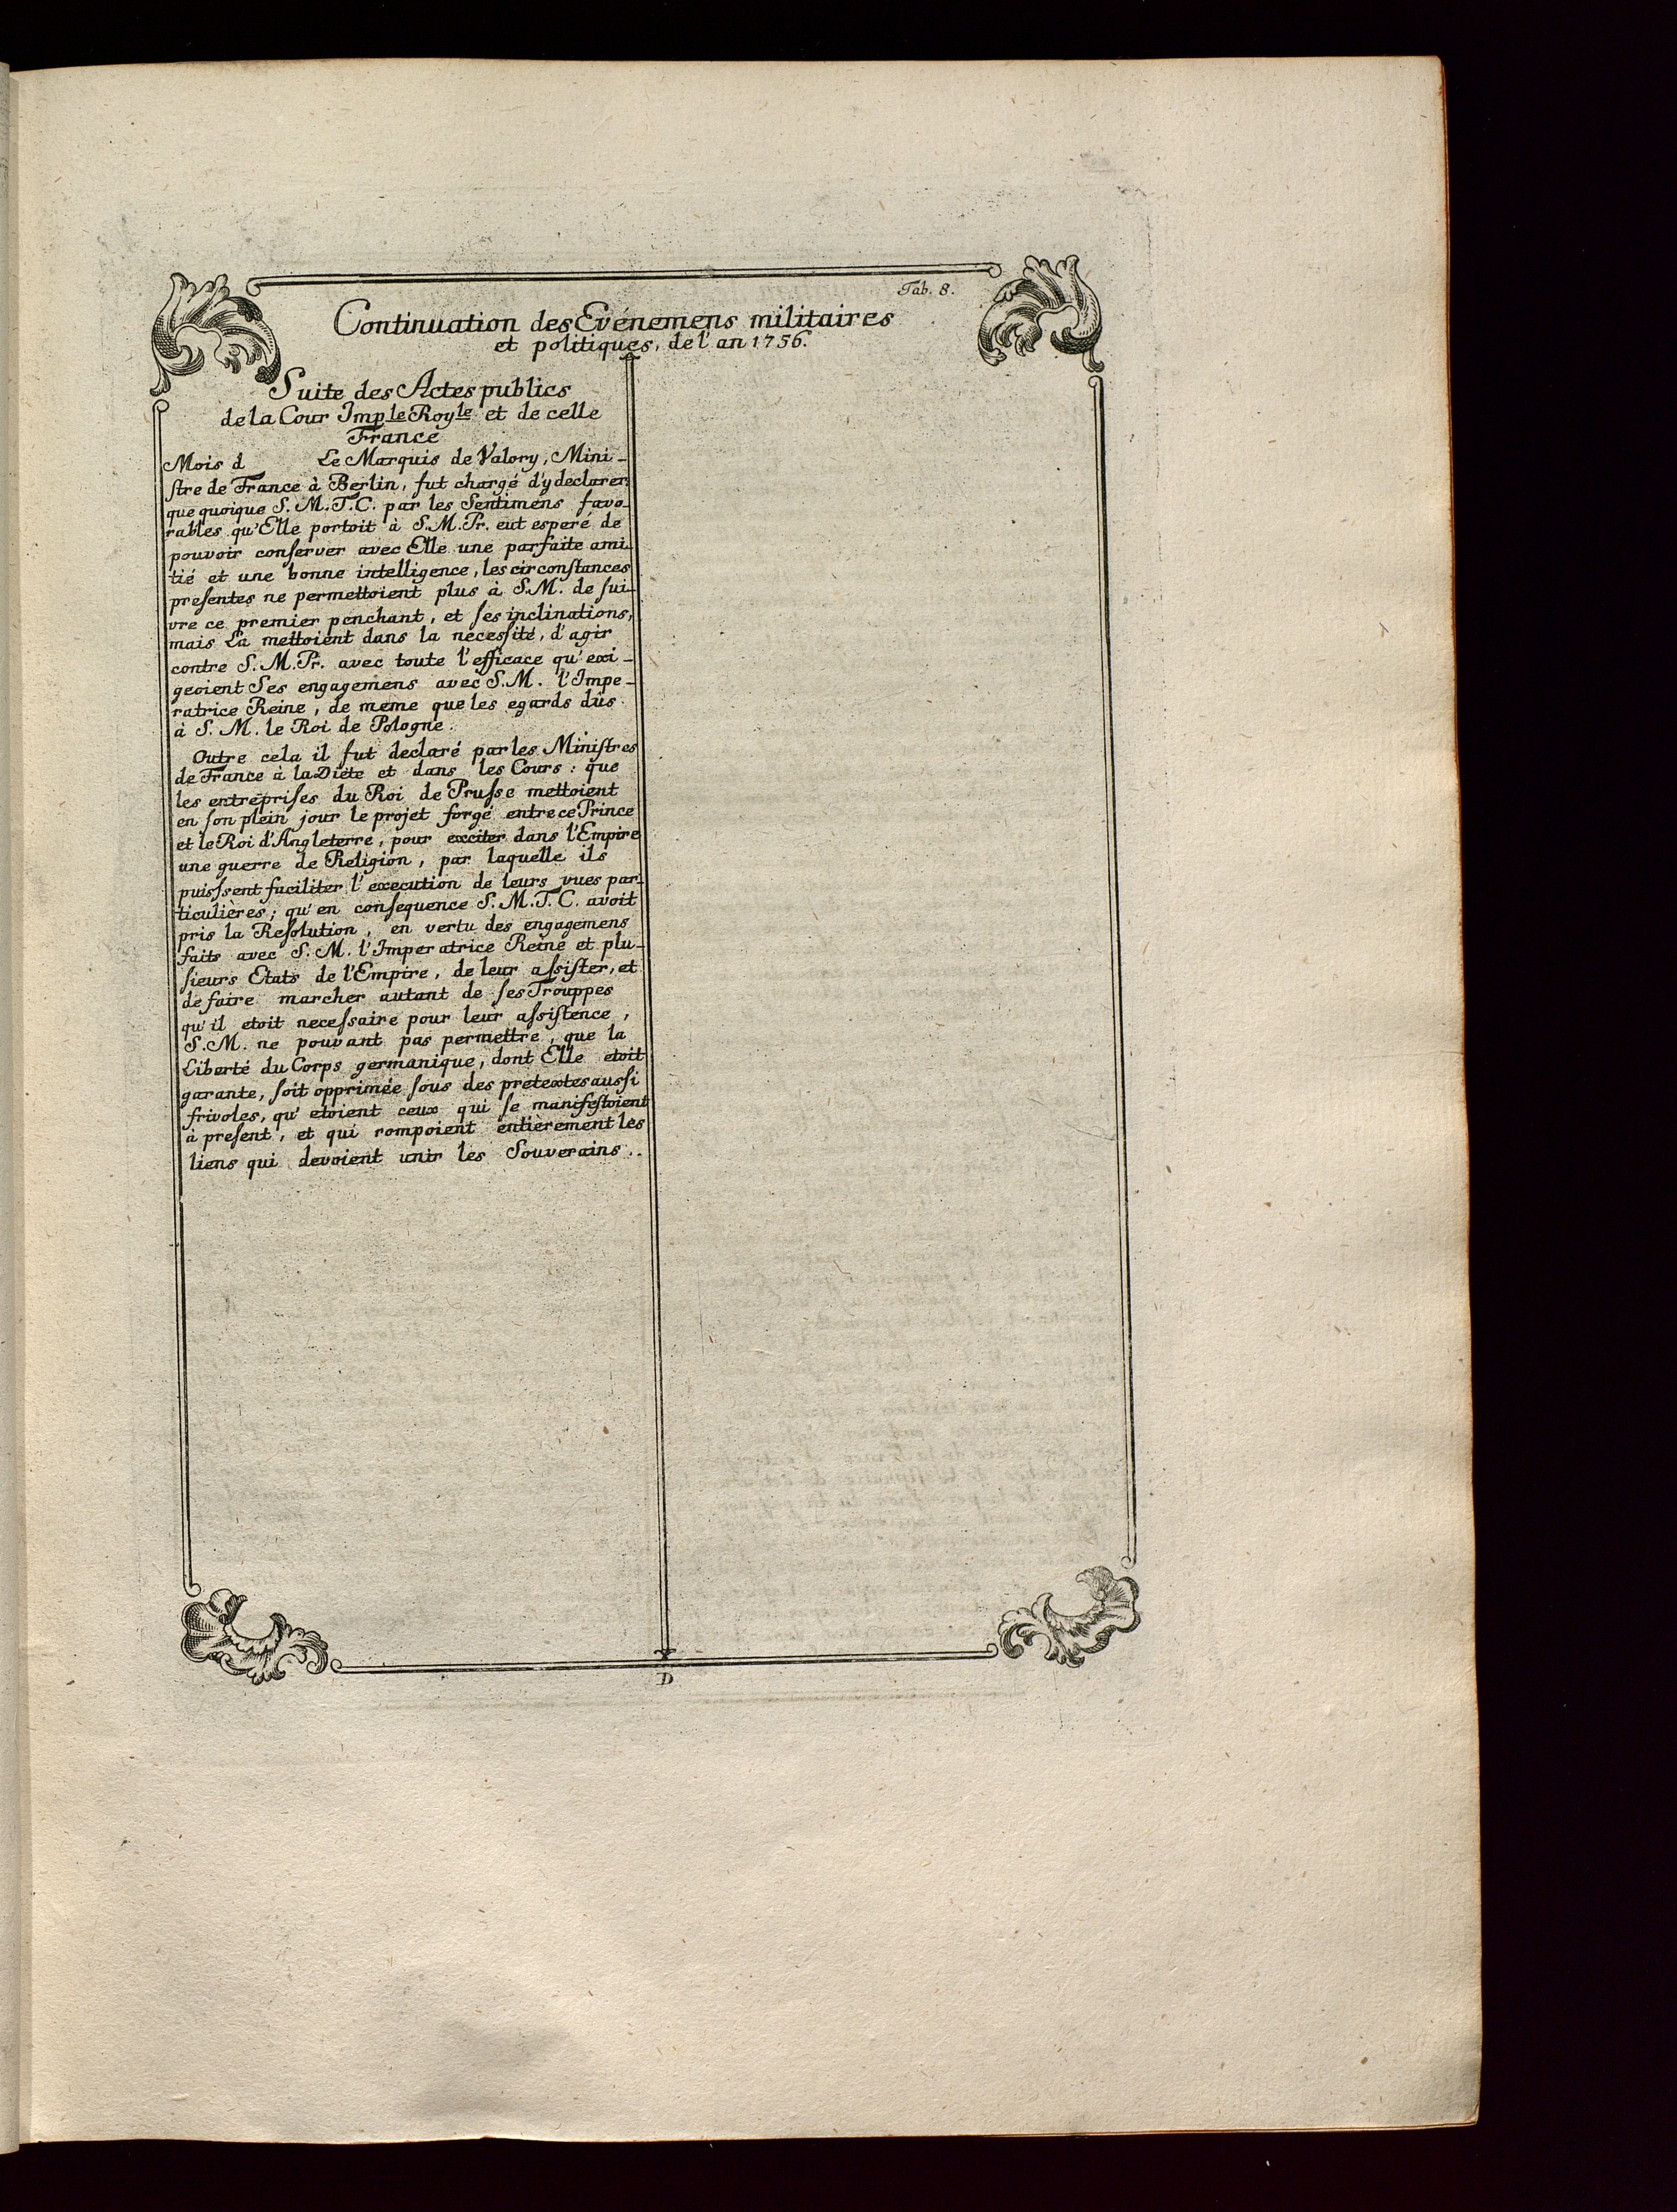 Tab. 8.
Continuation des Evénemens militaires
et politiques, de l'an 1756.
Suite des Actes publics
de la Cour Imple Royle et de celle
France
Mois d Le Marquis de Valory, Mini-
stre de France à Berlin, fut chargé d'y declarer,
que quoique S. M. T. C. par les Sentimens favo-
rables qu'Elle portoit à S. M. Pr. eut esperé de
pouvoir conserver avec Elle une parfaite ami-
tié et une bonne intelligence, les circonstances
presentes ne permettoient plus à S. M. de sui-
vre ce premier penchant, et ses inclinations,
mais La mettoient dans la necessité, d'agir
contre S. M. Pr. avec toute l'efficace qu'exi-
geoient Ses engagemens avec S. M. l'Impe-
ratrice Reine, de meme que les egards dûs
à S. M. le Roi de Pologne.
Outre cela il fut declaré par les Ministres
de France à la Diète et dans les Cours: que
les entreprises du Roi de Prusse mettoient
en son plein jour le projet forgé entre ce Prince
et le Roi d'Angleterre, pour exciter dans l'Empire
une guerre de Religion, par laquelle ils
puissent faciliter l'execution de leurs vues par-
ticulières; qu'en consequence S. M. T. C. avoit
pris la Resolution, en vertu des engagemens
faits avec S. M. l'Imperatrice Reine et plu-
sieurs Etats de l'Empire, de leur assister, et
de faire marcher autant de ses Trouppes
qu'il etoit necessaire pour leur assistence,
S. M. ne pouvant pas permettre, que la
Liberté du Corps germanique, dont Elle etoit
garante, soit opprimée sous des pretextes aussi
frivoles, qu'etoient ceux qui se manifestoient
à present, et qui rompoient entièrement les
liens qui devoient unir les Souverains..
D